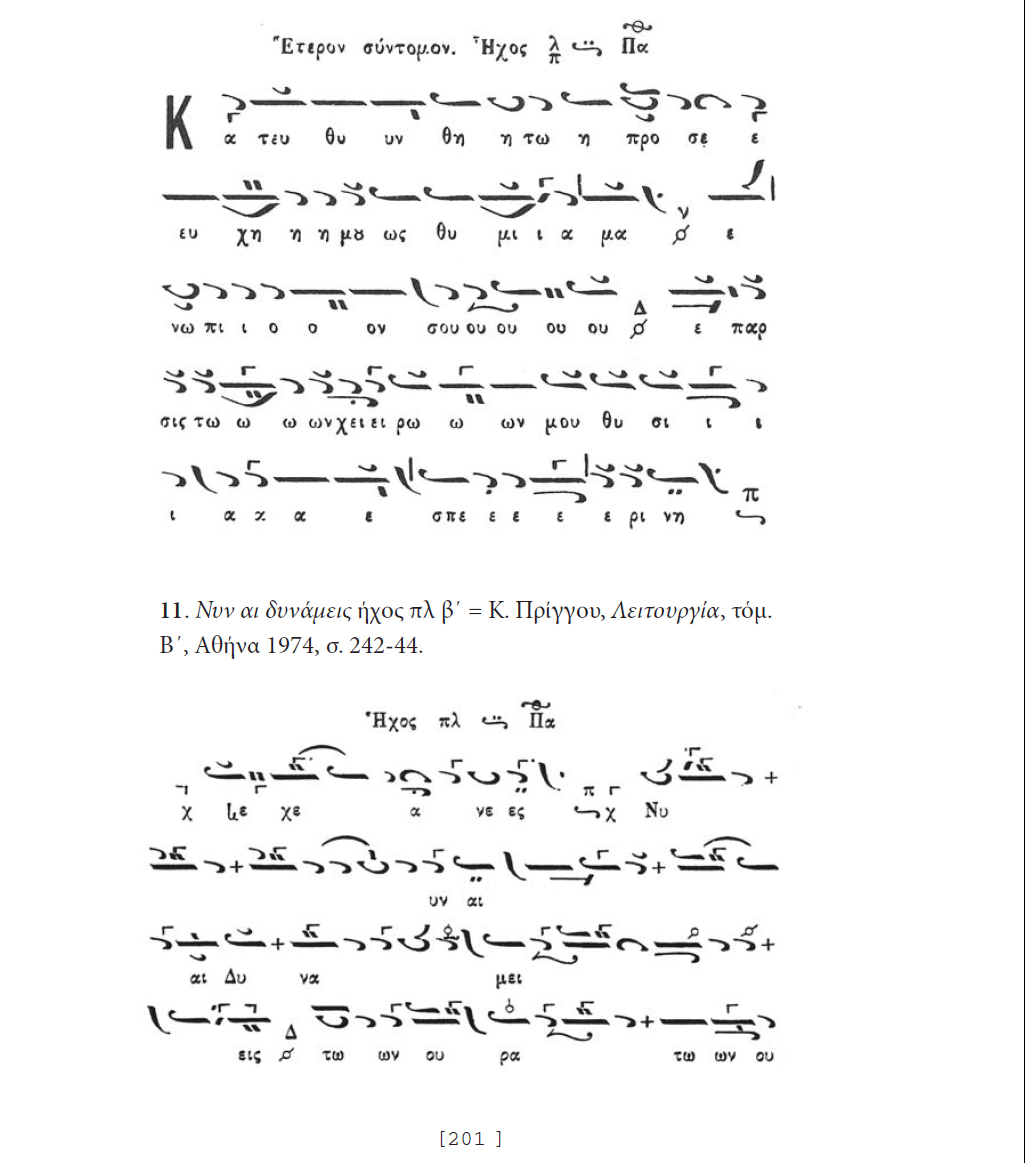 Ἕτερον σύντομον. Ἦχος λ π Πα
Κ α τευ θυ υν θη η τω η προ σε ε
ευ χη η η μȣ ως θυ μι ι α μα ν ε
νω πι ι ο ο ον σου ου ου ου ου Δ ε παρ
σις τω ω ω ων χει ει ρω ω ων μου θυ σι ι ι
ι α κ α ε σπε ε ε ε ε ρι νη π
11. Νυν αι δυνάμεις ήχος πλ β΄ = Κ. Πρίγγου, Λειτουργία, τόμ.
Β΄, Αθήνα 1974, σ. 242-44.
Ἦχος πλ Πα
χ Λε χε α γε ες π χ Νυ
υν αι
αι Δυ να μει
εις Δ τω ων ου ρα τω ων ου
[201 ]